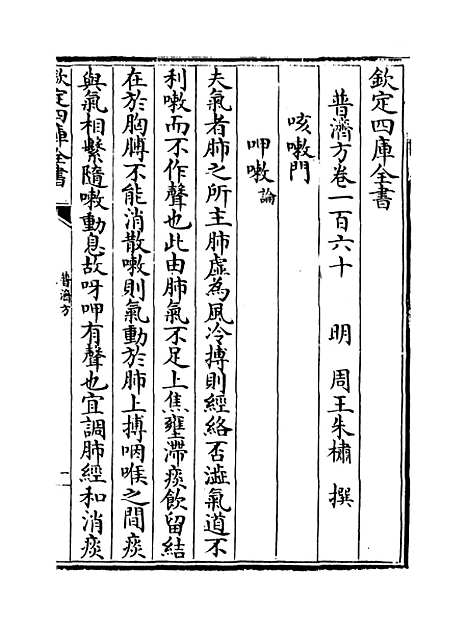 欽定四庫全書
普濟方卷一百六十 明 周王朱橚 撰
咳嗽門
呷嗽論
夫氣者肺之所主肺虛為風冷搏則經絡否澁氣道不
利嗽而不作聲也此由肺氣不足上焦壅滯痰飲留結
在於胸膊不能消散嗽則氣動於肺上搏咽喉之間痰
與氣相繫隨嗽動息故呀呷有聲也宜調肺經和消痰
欽定四庫全書
普濟方
一